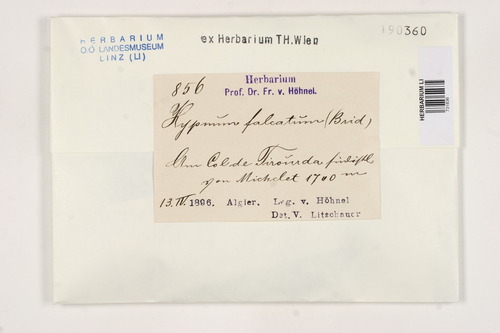 HERBARIUM
O.Ö. LANDESMUSEUM
LINZ (LI)
ex Herbarium TH.Wien
190360
HERBARIUM LI
856
Herbarium
Prof. Dr. Fr. v. Höhnel.
Hypnum falcatum (Brid.)
Am Col de Tirourda südöstl.
von Michelet 1700 m
13.IV.1896. Algier. Leg. v. Höhnel
Det. V. Litschauer